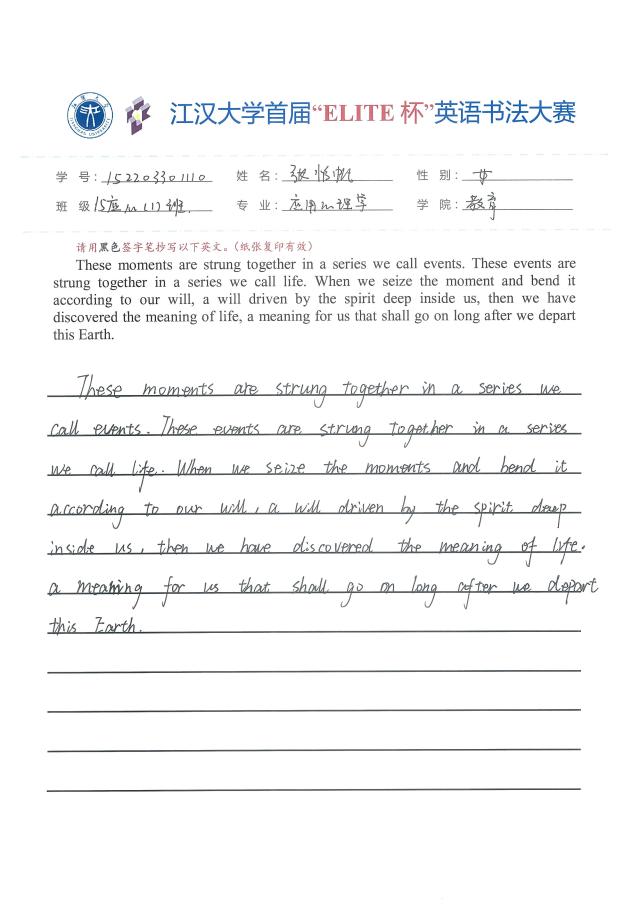 江汉大学首届“ELITE 杯”英语书法大赛
学 号: 152203301110 姓 名: 张怡帆 性 别: 女
班 级 15应心(1)班 专 业: 应用心理学 学 院: 教育
请用黑色签字笔抄写以下英文。(纸张复印有效)
These moments are strung together in a series we call events. These events are
strung together in a series we call life. When we seize the moment and bend it
according to our will, a will driven by the spirit deep inside us, then we have
discovered the meaning of life, a meaning for us that shall go on long after we depart
this Earth.
These moments are strung together in a series we
call events. These events are strung together in a series
we call life. When we seize the moments and bend it
according to our will, a will driven by the spirit deep
inside us, then we have discovered the meaning of life.
a meaning for us that shall go on long after we depart
this Earth.